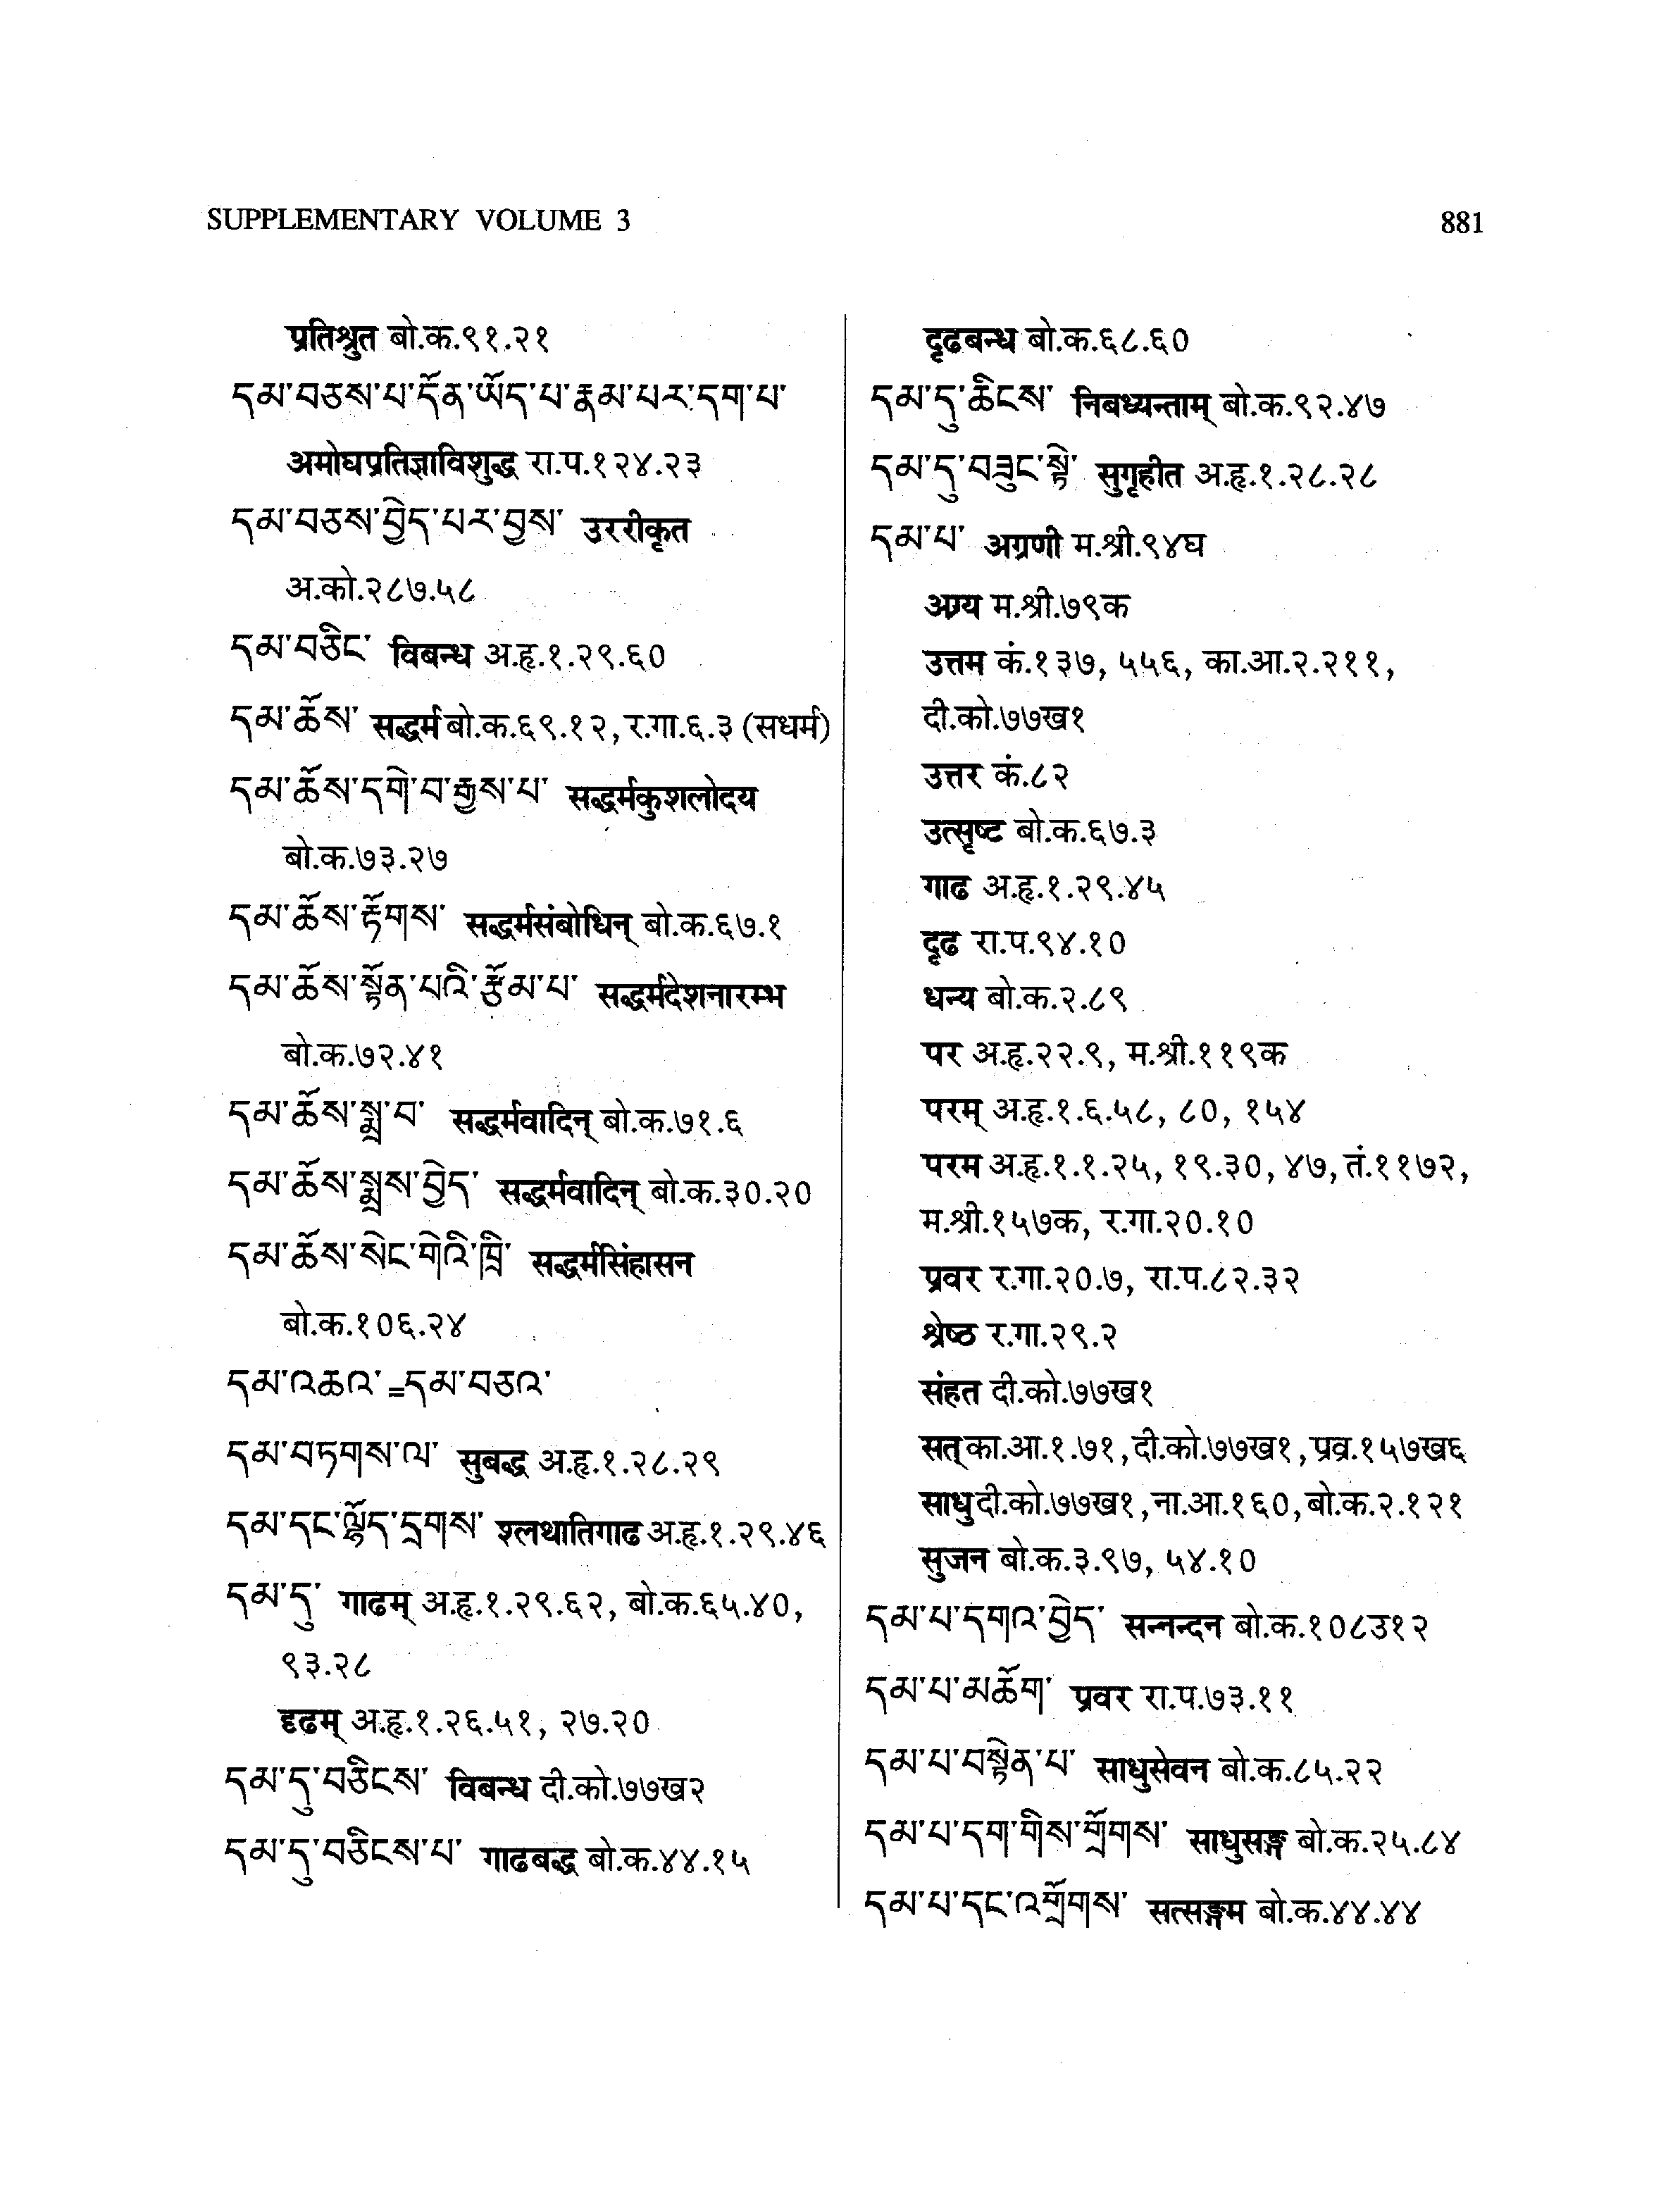 SUPPLEMENTARY VOLUME 3
881
प्रतिश्रुत बो.क.९१.२१
དམ་བཅས་པ་དོན་ཡོད་པ་རྣམ་པར་དག་པ་
अमोघप्रतिज्ञाविशुद्ध रा.प.१२४.२३
དམ་བཅས་བྱེད་པར་བྱས་ उररीकृत
अ.को.२८७.५८
དམ་བཅིང་ विबन्ध अ.हृ.१.२९.६०
དམ་ཆོས་ सद्धर्म बो.क.६९.१२, र.गा.६.३ (सधर्म)
དམ་ཆོས་དགེ་བ་རྒྱས་པ་ सद्धर्मकुशलोदय
बो.क.७३.२७
དམ་ཆོས་རྟོགས་ सद्धर्मसंबोधिन् बो.क.६७.१
དམ་ཆོས་སྟོན་པའི་རྩོམ་པ་ सद्धर्मदेशनारम्भ
बो.क.७२.४१
དམ་ཆོས་སྨྲ་བ་ सद्धर्मवादिन् बो.क.७१.६
དམ་ཆོས་སྨྲས་བྱེད་ सद्धर्मवादिन् बो.क.३०.२०
དམ་ཆོས་སེང་གེའི་ཁྲི་ सद्धर्मसिंहासन
बो.क.१०६.२४
དམ་འཆའ་=དམ་བཅའ་
དམ་བཏགས་ལ་ सुबद्ध अ.हृ.१.२८.२९
དམ་དང་ལྷོད་དྲགས་ श्लथातिगाढ अ.हृ.१.२९.४६
དམ་དུ་ गाढम् अ.हृ.१.२९.६२, बो.क.६५.४०,
९३.२८
दृढम् अ.हृ.१.२६.५१, २७.२०
དམ་དུ་བཅིངས་ विबन्ध दी.को.७७ख२
དམ་དུ་བཅིངས་པ་ गाढबद्ध बो.क.४४.१५
दृढबन्ध बो.क.६८.६०
དམ་དུ་ཆིངས་ निबध्यन्ताम् बो.क.९२.४७
དམ་དུ་བཟུང་སྟེ་ सुगृहीत अ.हृ.१.२८.२८
དམ་པ་ अग्रणी म.श्री.९४घ
अग्र्य म.श्री.७९क
उत्तम कं.१३७, ५५६, का.आ.२.२११,
दी.को.७७ख१
उत्तर कं.८२
उत्सृष्ट बो.क.६७.३
गाढ अ.हृ.१.२९.४५
दृढ रा.प.९४.१०
धन्य बो.क.२.८९
पर अ.हृ.२२.९, म.श्री.११९क
परम् अ.हृ.१.६.५८, ८०, १५४
परम अ.हृ.१.१.२५, १९.३०, ४७, तं.११७२,
म.श्री.१५७क, र.गा.२०.१०
प्रवर र.गा.२०.७, रा.प.८२.३२
श्रेष्ठ र.गा.२९.२
संहत दी.को.७७ख१
सत् का.आ.१.७१, दी.को.७७ख१, प्रव्र.१५७ख६
साधु दी.को.७७ख१, ना.आ.१६०, बो.क.२.१२१
सुजन बो.क.३.९७, ५४.१०
དམ་པ་དགའ་བྱེད་ सन्नन्दन बो.क.१०८उ१२
དམ་པ་མཆོག་ प्रवर रा.प.७३.११
དམ་པ་བསྟེན་པ་ साधुसेवन बो.क.८५.२२
དམ་པ་དག་གིས་གྲོགས་ साधुसङ्ग बो.क.२५.८४
དམ་པ་དང་འགྲོགས་ सत्सङ्गम बो.क.४४.४४